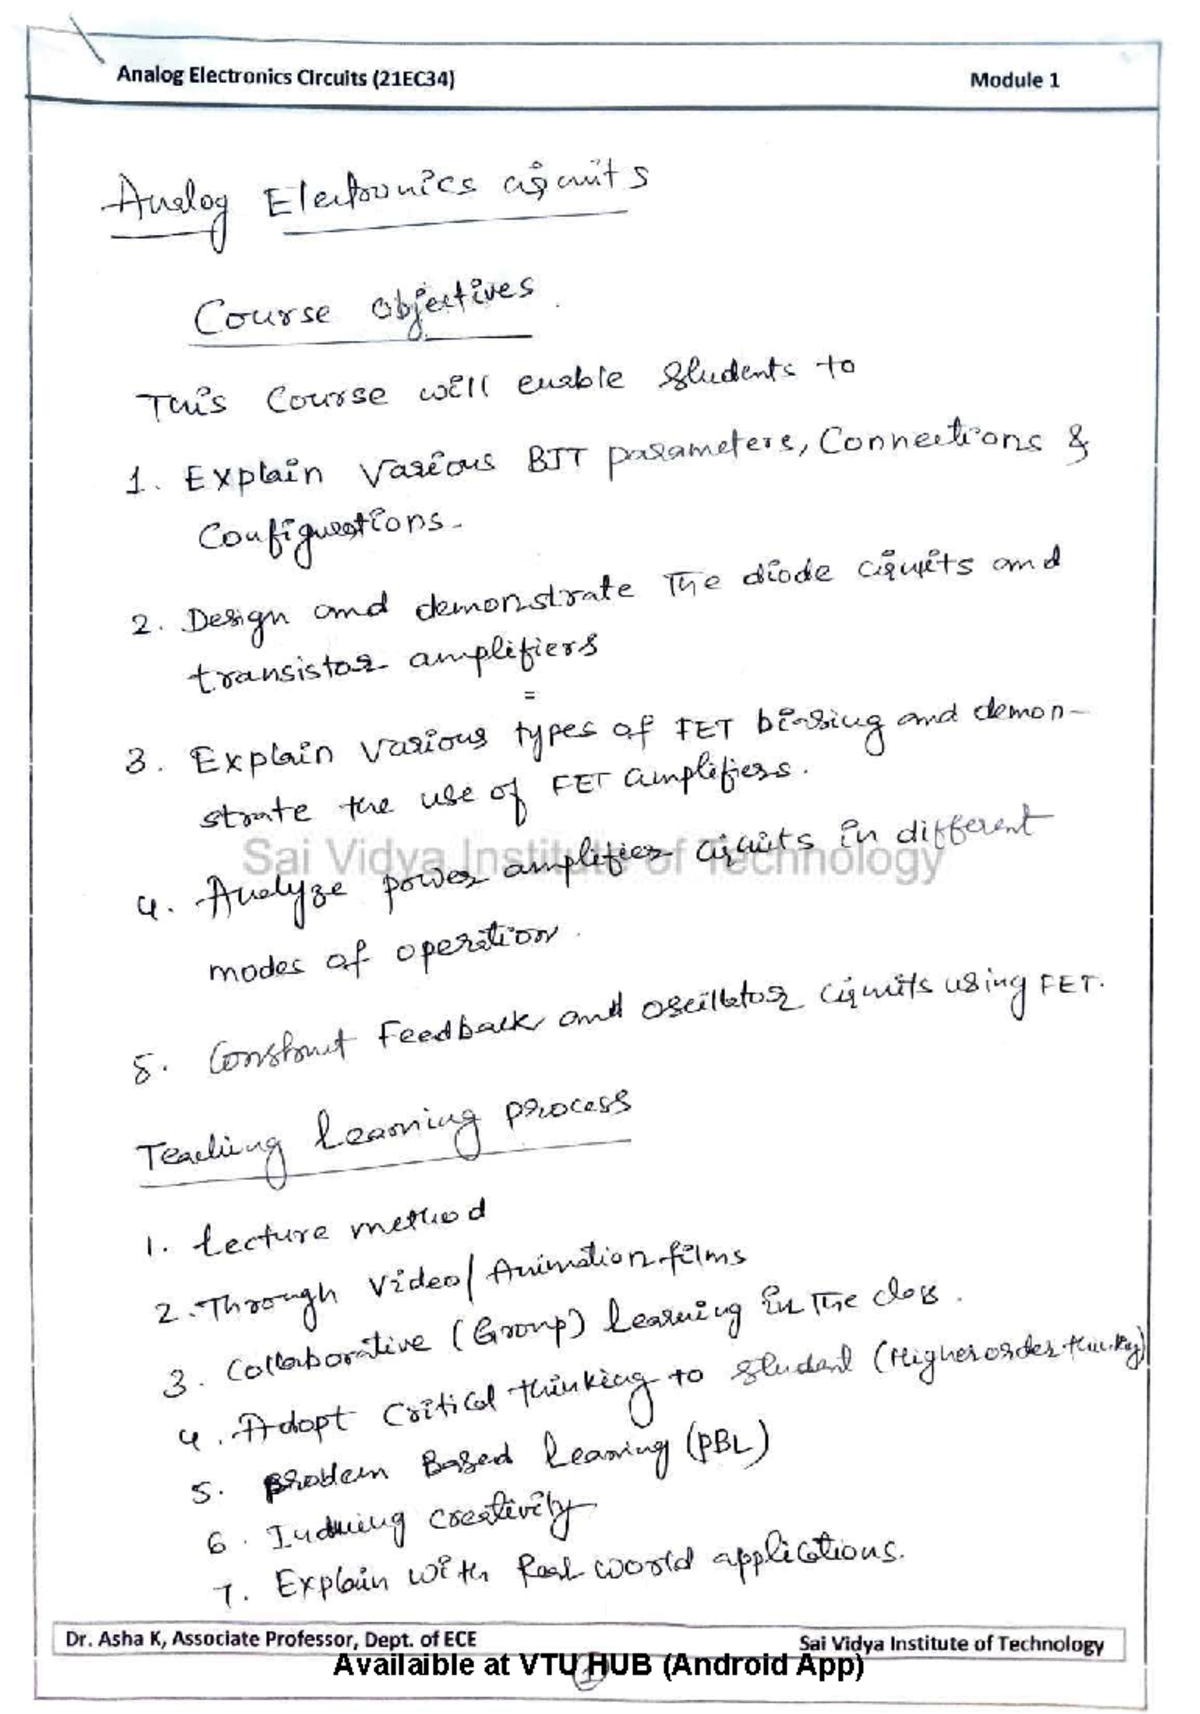 Analog Electronics Circuits (21EC34) Module 1
Analog Electronics circuits
Course objectives.
This Course will enable students to
1. Explain Various BJT parameters, Connections &
Configurations.
2. Design and demonstrate The diode circuits and
transistor amplifiers
=
3. Explain various types of FET biasing and demon-
strate the use of FET amplifiers.
Sai Vidya Institute of Technology
4. Analyze power amplifier circuits in different
modes of operation.
5. Construct Feedback and oscillator circuits using FET.
Teaching learning process
1. Lecture method
2. Through Video/Animation films
3. Collaborative (Group) learning in The class.
4. Adopt Critical thinking to student (Higher order thinking)
5. Problem Based learning (PBL)
6. Inducing creativity
7. Explain with Real world applications.
Dr. Asha K, Associate Professor, Dept. of ECE Sai Vidya Institute of Technology
Availaible at VTU HUB (Android App)
1